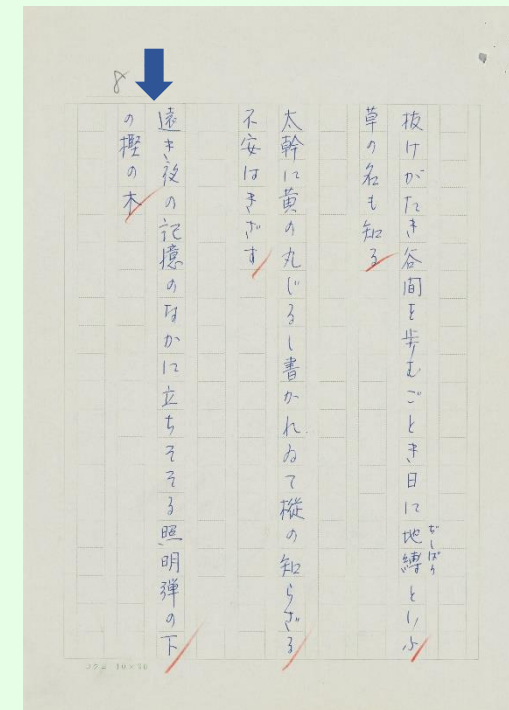 抜けがたき谷間を歩むごとき日に地縛といふ
ぢしばり
草の名も知る
太幹に黄の丸じるし書かれゐて樅の知らざる
不安はきざす
遠き夜の記憶のなかに立ちそそる照明弾の下
の樫の木
8